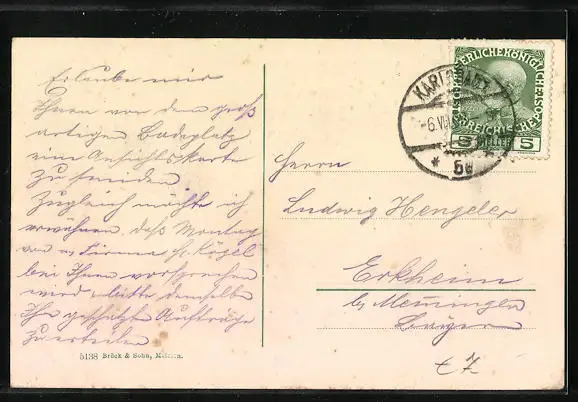 Erlaube mir
Ihnen von dem groß
artigen Badeplatz
eine Ansichtskarte
zu senden.
Zugleich möchte ich
erwähnen, daß Montag
von Firma Kögel
bei Ihnen vorsprechen
wird, bitte demselben
Ihre geschätzte Aufträge
zu erteilen
5138 Brück & Sohn, Meissen.
KARLSBAD
-6.VII
* 5a
KAISERLICHE KÖNIGLICHE
ÖSTERREICHISCHE POST
5 HELLER 5
Herrn
Ludwig Hengeler
Erkheim
b/ Memmingen
Bayern